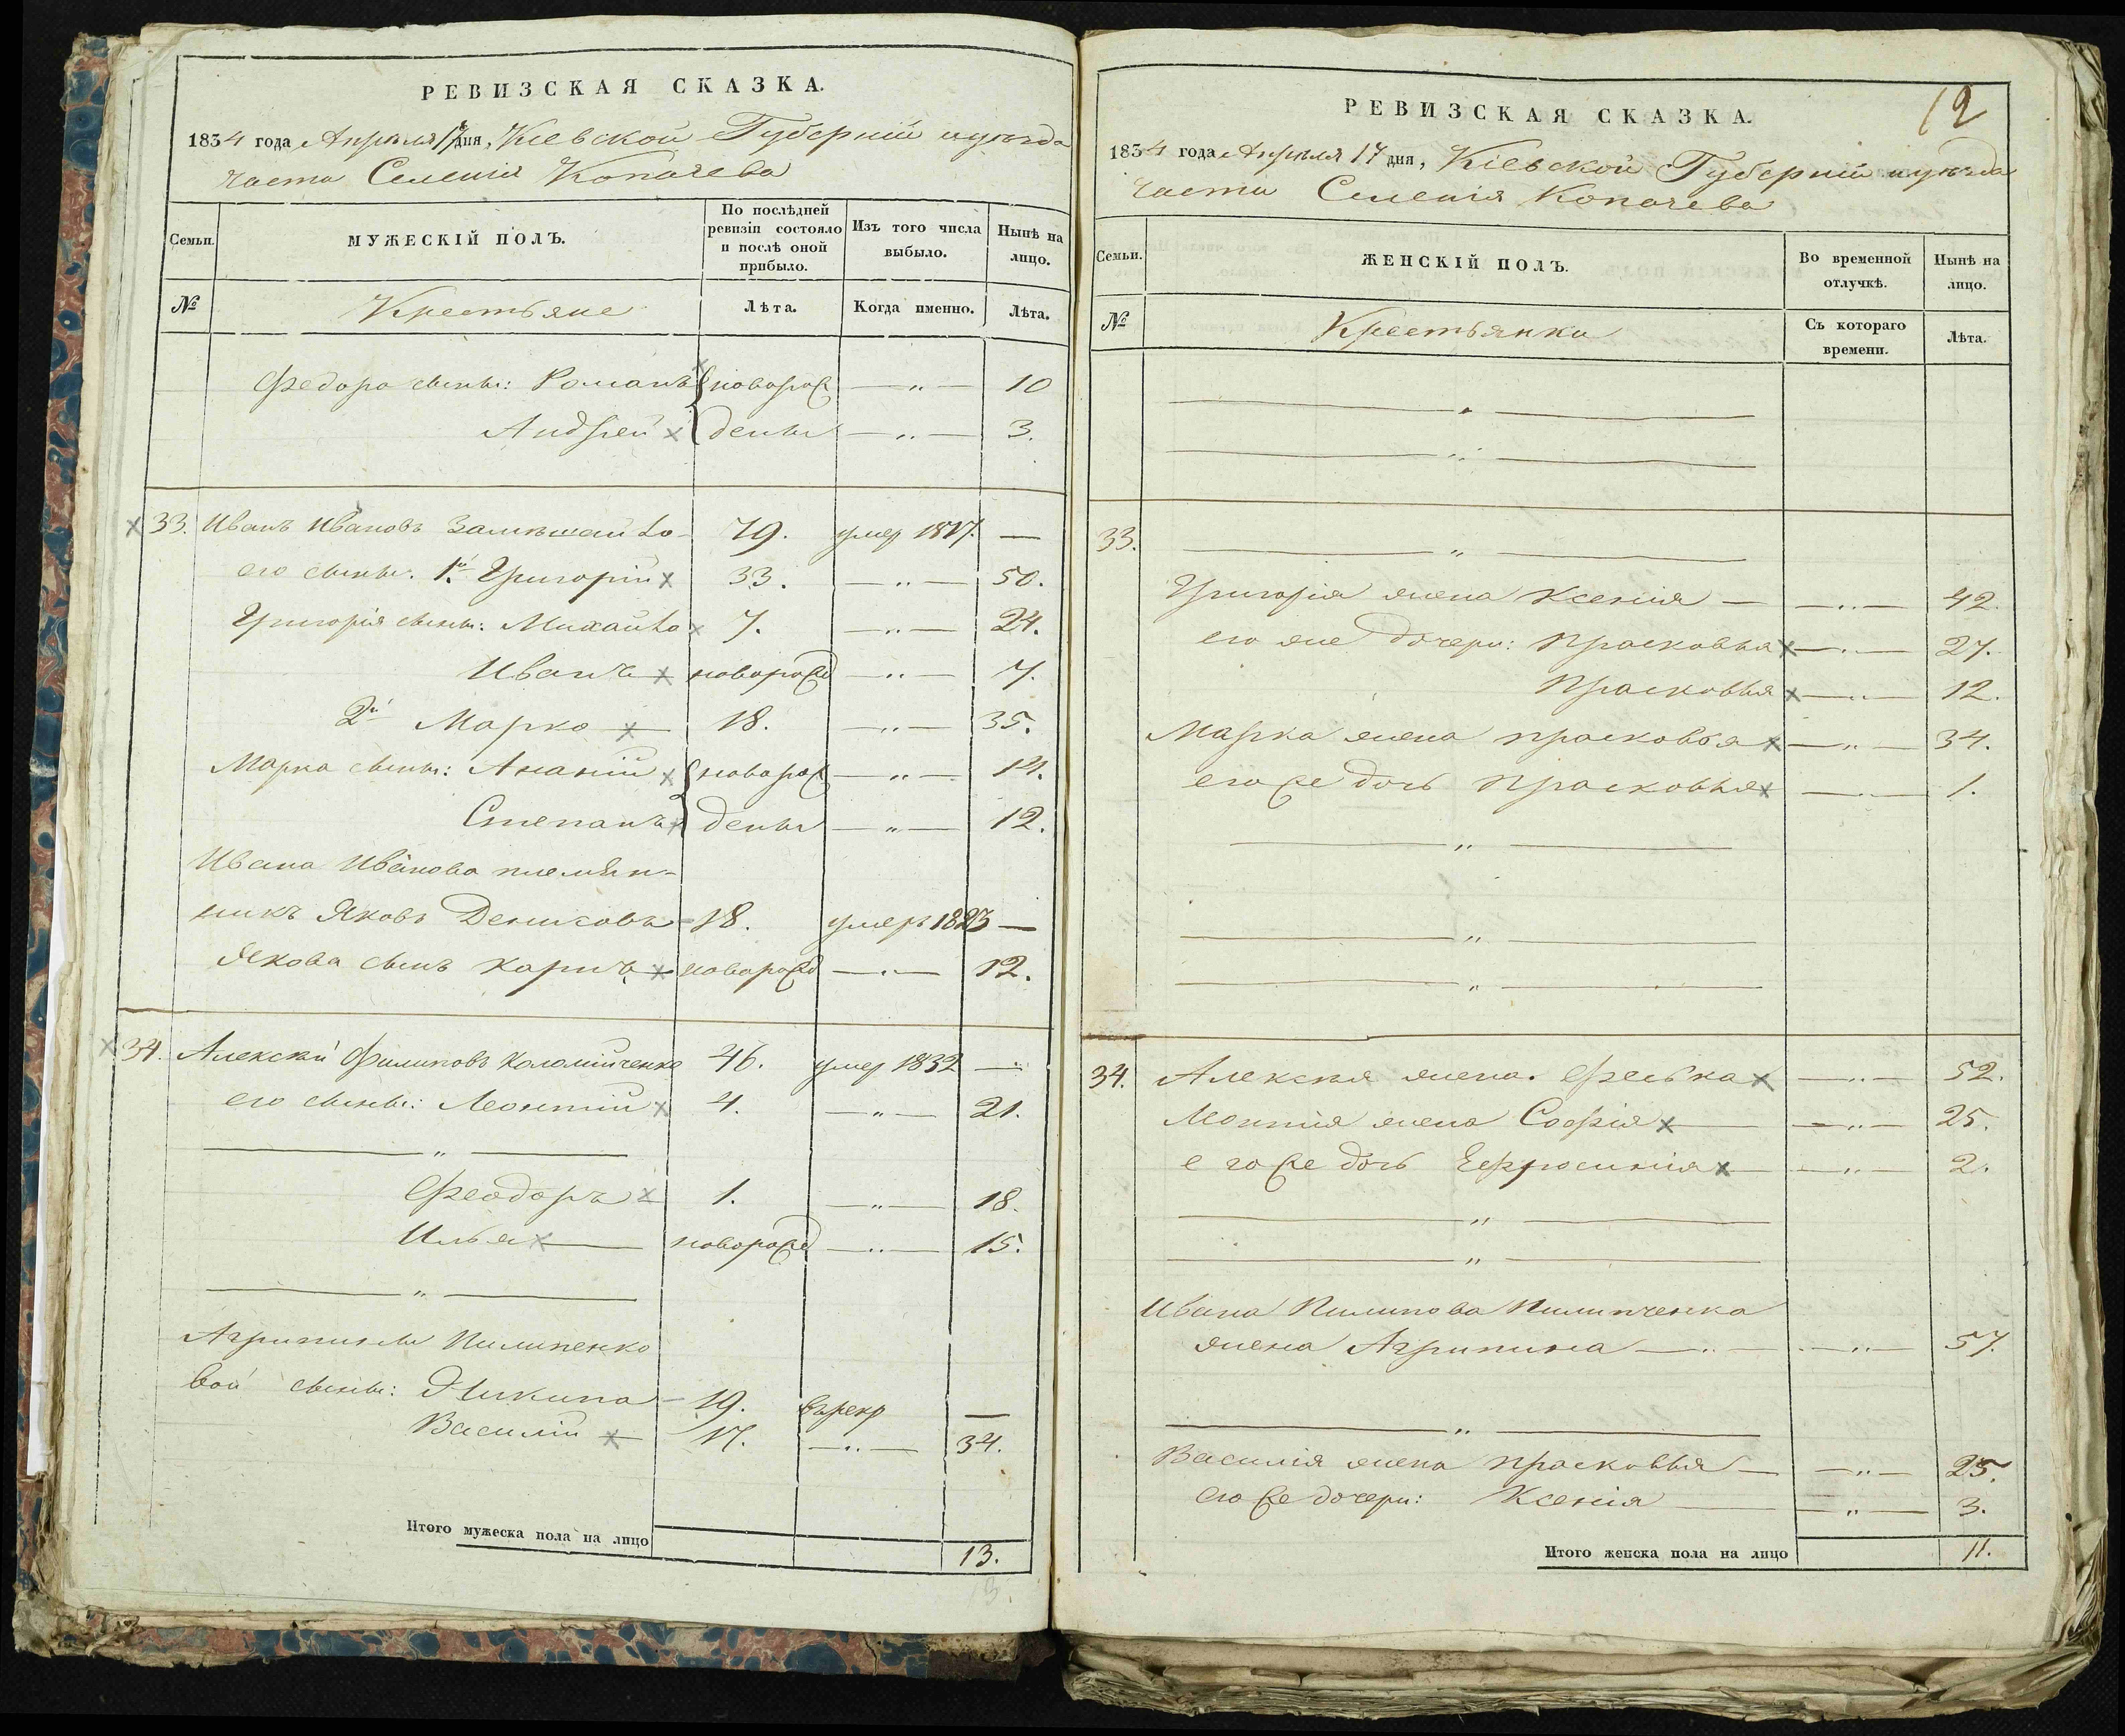 РЕВИЗСКАЯ СКАЗКА.
1834 года Апрѣля 17 дня, Кіевской Губерніи и уѣзда
части Селенія Копачева
Семьи.
МУЖЕСКІЙ ПОЛЪ.
По послѣдней ревизіи состояло и послѣ оной прибыло.
Изъ того числа выбыло.
Нынѣ на лицо.
№
Крестьяне
Лѣта.
Когда именно.
Лѣта.
Федора сыны: Романъ новорож — „ — 10
Андрей дены — „ — 3.
33. Иванъ Ивановъ 79. умер 1817. —
его сыны. 1й Григорій 33. — „ — 50.
Григорія сыны: Михайло 7. — „ — 24.
Иванъ новорожд — „ — 7.
2й Марко 18. — „ — 35.
Марка сыны: Ананій новорож — „ — 14.
Степанъ дены — „ — 12.
Ивана Иванова племян-
никъ Яковъ Денисовъ 18. умеръ 1823 —
Якова сынъ Карпъ новорожд — „ — 12.
34. Алексѣй Филиповъ Коломійченко 46. умер 1832 —
его сыны: Леонтій 4. — „ — 21.
— „ —
Феодоръ 1. — „ — 18.
Илья новорожд — „ — 15.
— „ —
Агрипины Пилипенко
вой сыны: Никита 19. въ рекр —
Василій 17. — „ — 34.
Итого мужеска пола на лицо 13.
13.
12
РЕВИЗСКАЯ СКАЗКА.
1834 года Апрѣля 17 дня, Кіевской Губерніи и уѣзда
части Селенія Копачева
Семьи.
ЖЕНСКІЙ ПОЛЪ.
Во временной отлучкѣ.
Нынѣ на лицо.
№
Крестьянки
Съ котораго времени.
Лѣта.
— „ —
— „ —
33. — „ —
Григорія жена Ксенія — „ — 42.
его же дочери: Прасковья — „ — 27.
Прасковья — „ — 12.
Марка жена Прасковья — „ — 34.
его же дочь Прасковья — „ — 1.
— „ —
— „ —
— „ —
34. Алексѣя жена. Феська — „ — 52.
Леонтія жена Софія — „ — 25.
его же дочь Ефросинія — „ — 2.
— „ —
— „ —
Ивана Пилипова Пилипченка
жена Агрипина — „ — 57.
— „ —
Василія жена Прасковья — „ — 25.
его же дочери: Ксенія — „ — 3.
Итого женска пола на лицо 11.